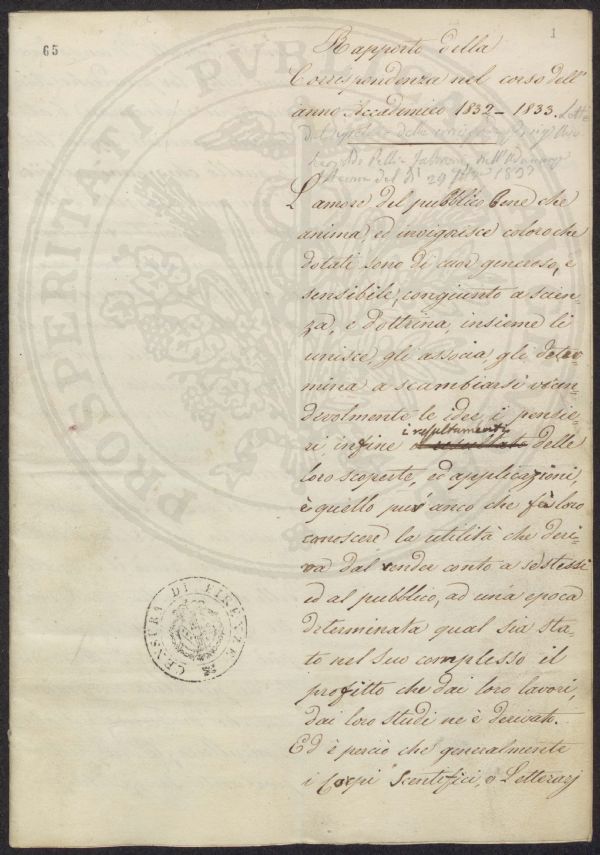 65
1
Rapporto della
Corrispendenza nel corso dell'
anno Accademico 1832-1833. Letto
Leopoldo Pelli-Fabbroni nell'Adunanza
del di 29 1833
L'amore del pubblico bene che
anima, ed invigorisce coloro che
dotati sono di cuor generoso, e
sensibile, congiunto a scien-
za, e dottrina, insieme li
unisce, gli associa, gli deter
mina a scambiarsi vicen
devolmente le idee, i pensie
i resultamenti
ri, infine o resultato delle
loro scoperte, ed applicazioni,
è quello pur anco che fà loro
conoscere la utilità che deri-
va dal render conto a se stessi
ed al pubblico, ad una epoca
determinata qual sia sta-
to nel suo complesso il
profitto che dai loro lavori,
dai loro studi ne è derivato.
Ed è perciò che generalmente
i Corpi Scentifici, o Letterarj
CENSURA DI FIRENZE
PROSPERITATI PUBLICAE